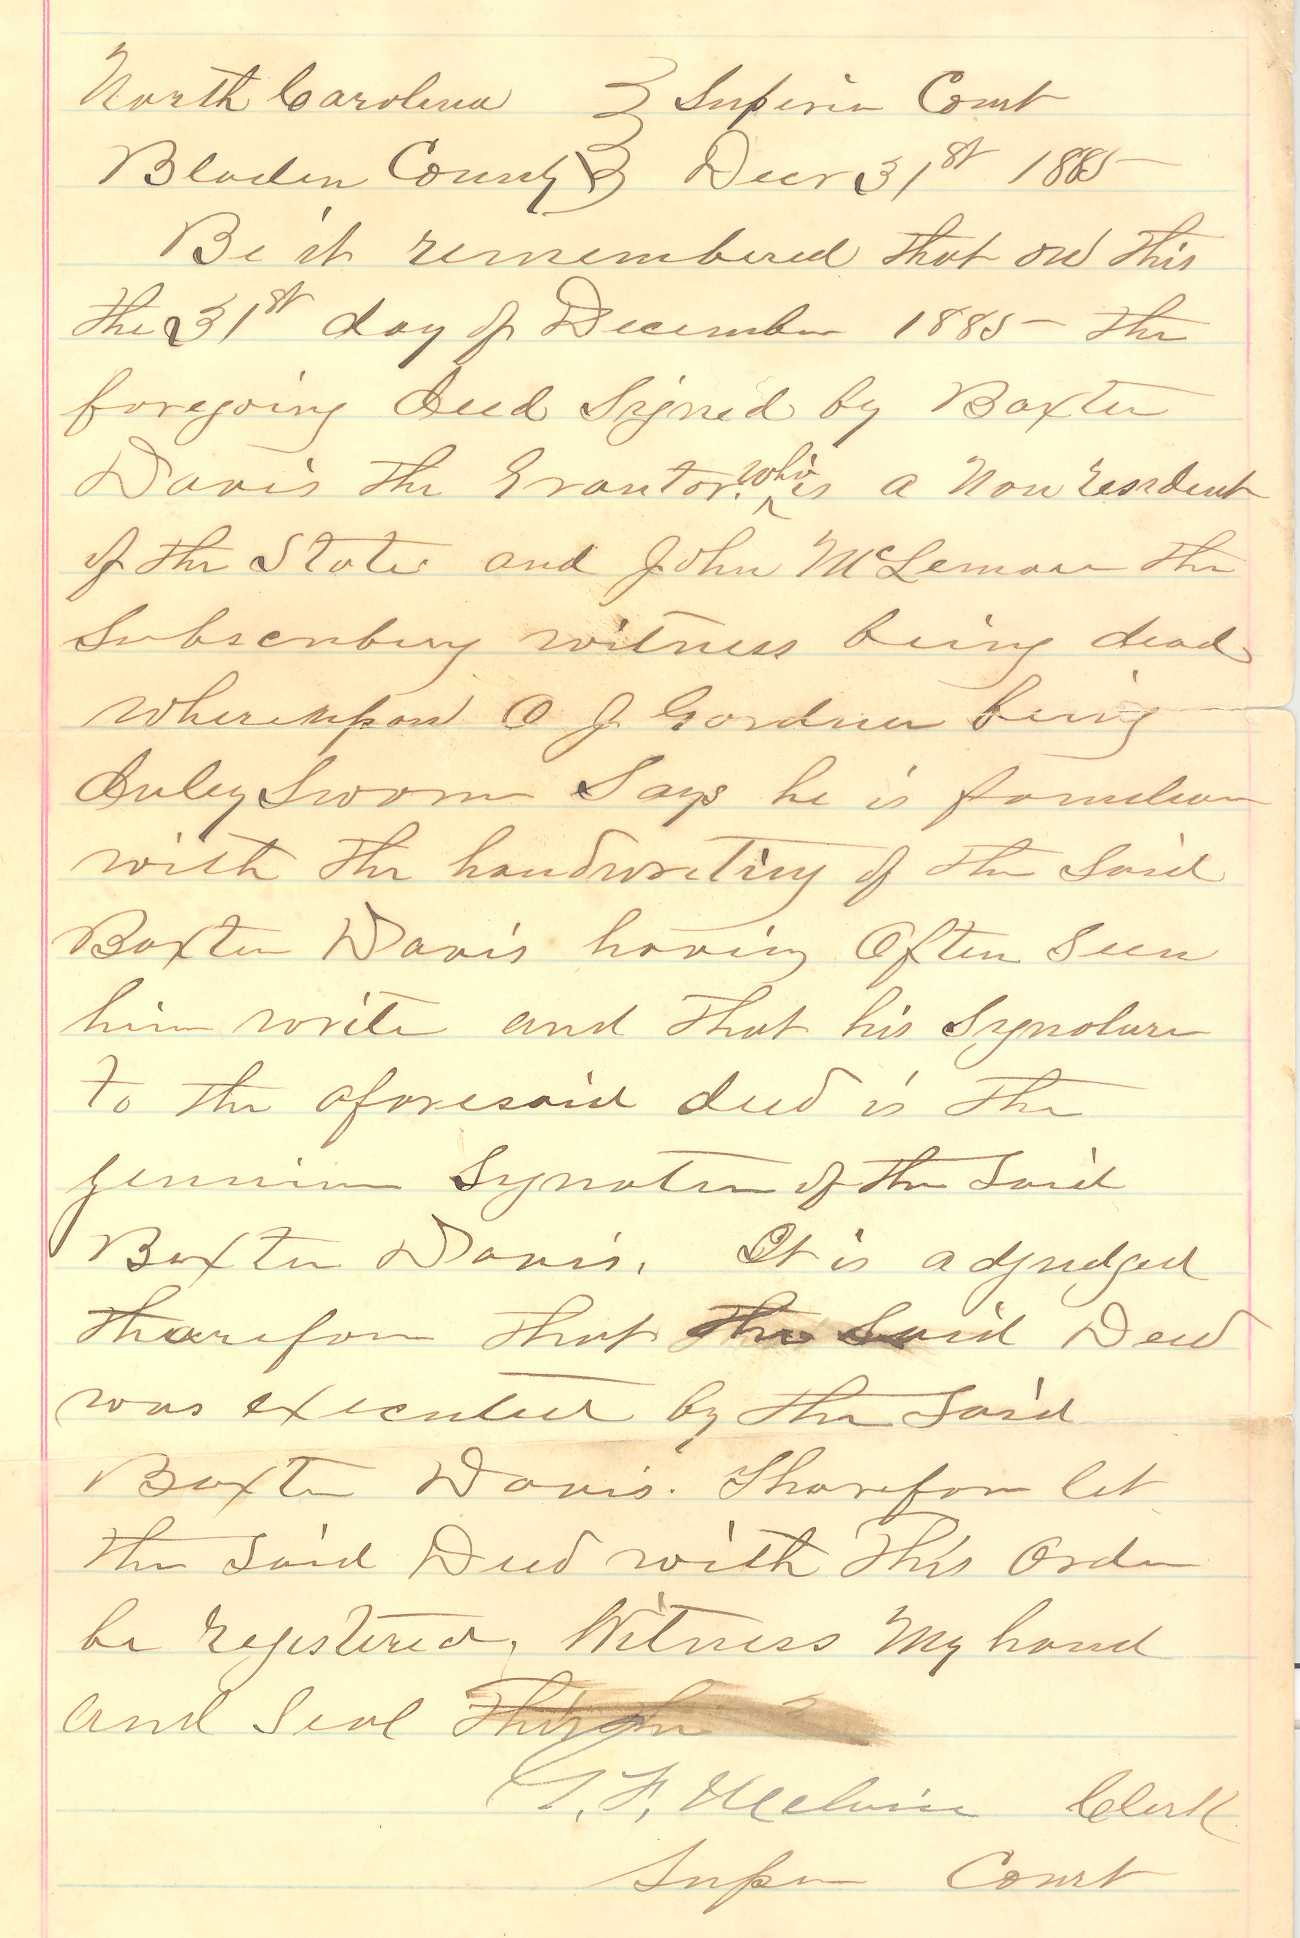 North Carolina } Superior Court
Bladen County } Decr 31st 1885
Be it remembered that on this
the 31st day of December 1885 the
foregoing deed Signed by Baxter
Davis the Grantor. who is a Non resident
of the State and John McLemore the
Subscribing witness being dead
whereupon O J Gardner being
duley Sworn Says he is familiar
with the handwriting of the Said
Baxter Davis having Often Seen
him write and that his Signature
to the aforesaid deed is the
genuine Signature of the Said
Baxter Davis. It is adjudged
tharefore that the Said Deed
was executed by the Said
Baxter Davis. Tharefore let
the Said Deed with this Order
be registered, Witness My hand
and Seal this
F. Melvin Clerk
Super Court